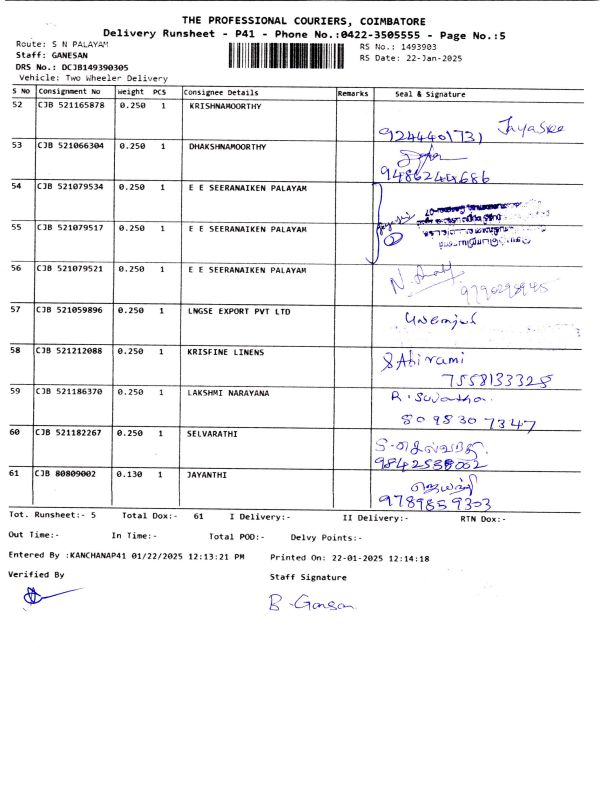 THE PROFESSIONAL COURIERS, COIMBATORE
Delivery Runsheet - P41 - Phone No.:0422-3505555 - Page No.:5
Route: S N PALAYAM
RS No.: 1493903
Staff: GANESAN
RS Date: 22-Jan-2025
DRS No.: DCJB149390305
Vehicle: Two Wheeler Delivery
S No Consignment No Weight PCS Consignee Details Remarks Seal & Signature
52 CJB 521165878 0.250 1 KRISHNAMOORTHY
9244401731 Jayasree
53 CJB 521066304 0.250 1 DHAKSHNAMOORTHY
9486244686
54 CJB 521079534 0.250 1 E E SEERANAIKEN PALAYAM
55 CJB 521079517 0.250 1 E E SEERANAIKEN PALAYAM
56 CJB 521079521 0.250 1 E E SEERANAIKEN PALAYAM
9790298945
57 CJB 521059896 0.250 1 LNGSE EXPORT PVT LTD
58 CJB 521212088 0.250 1 KRISFINE LINENS
S Abirami
7558133328
59 CJB 521186370 0.250 1 LAKSHMI NARAYANA
R. Sujatha.
8098307347
60 CJB 521182267 0.250 1 SELVARATHI
61 CJB 80809002 0.130 1 JAYANTHI
9789859303
Tot. Runsheet:- 5 Total Dox:- 61 I Delivery:- II Delivery:- RTN Dox:-
Out Time:- In Time:- Total POD:- Delvy Points:-
Entered By :KANCHANAP41 01/22/2025 12:13:21 PM Printed On: 22-01-2025 12:14:18
Verified By
Staff Signature
B. Gansan